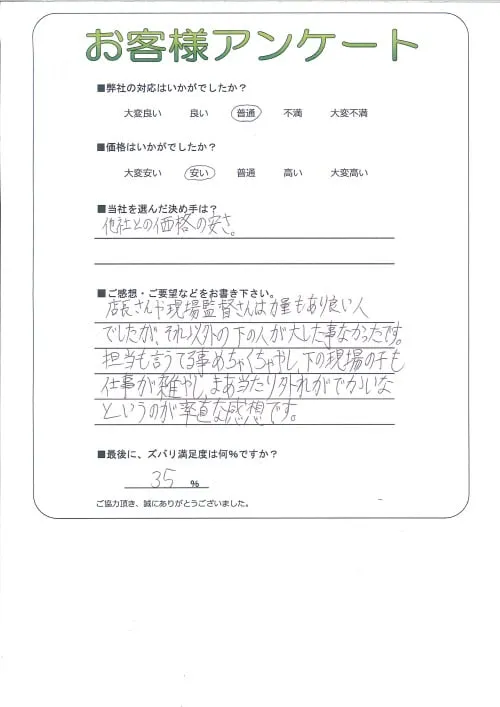 お客様アンケート
■弊社の対応はいかがでしたか？
大変良い 良い 普通 不満 大変不満
■価格はいかがでしたか？
大変安い 安い 普通 高い 大変高い
■当社を選んだ決め手は？
他社との価格の安さ。
■ご感想・ご要望などをお書き下さい。
店長さんや現場監督さんは力量もあり良い人
でしたが、それ以外の下の人が大した事なかったです。
担当も言うてる事めちゃくちゃやし、下の現場の子も
仕事が雑やし、まあ当たり外れがでかいな
というのが率直な感想です。
■最後に、ズバリ満足度は何％ですか？
35 %
ご協力頂き、誠にありがとうございました。